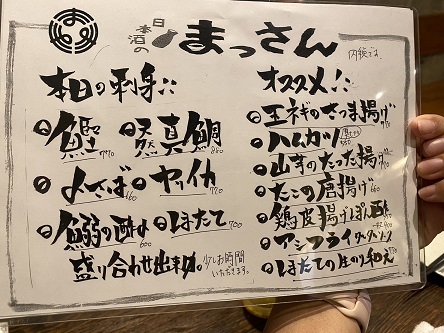 日本酒の
まっさん
内税です。
本日の刺身
鰹 770
天然真鯛 880
〆さば 660
ヤリイカ 770
鰯の酢〆 600
ほたて 700
盛り合わせ出来ます。
少しお時間いただきます。
オススメ!
玉ネギのさつま揚げ
ハムカツ
山芋のたった揚げ
たこの唐揚げ 660
鶏皮揚げぽん酢
アジフライ タルタルソース
ほたての生のり和え